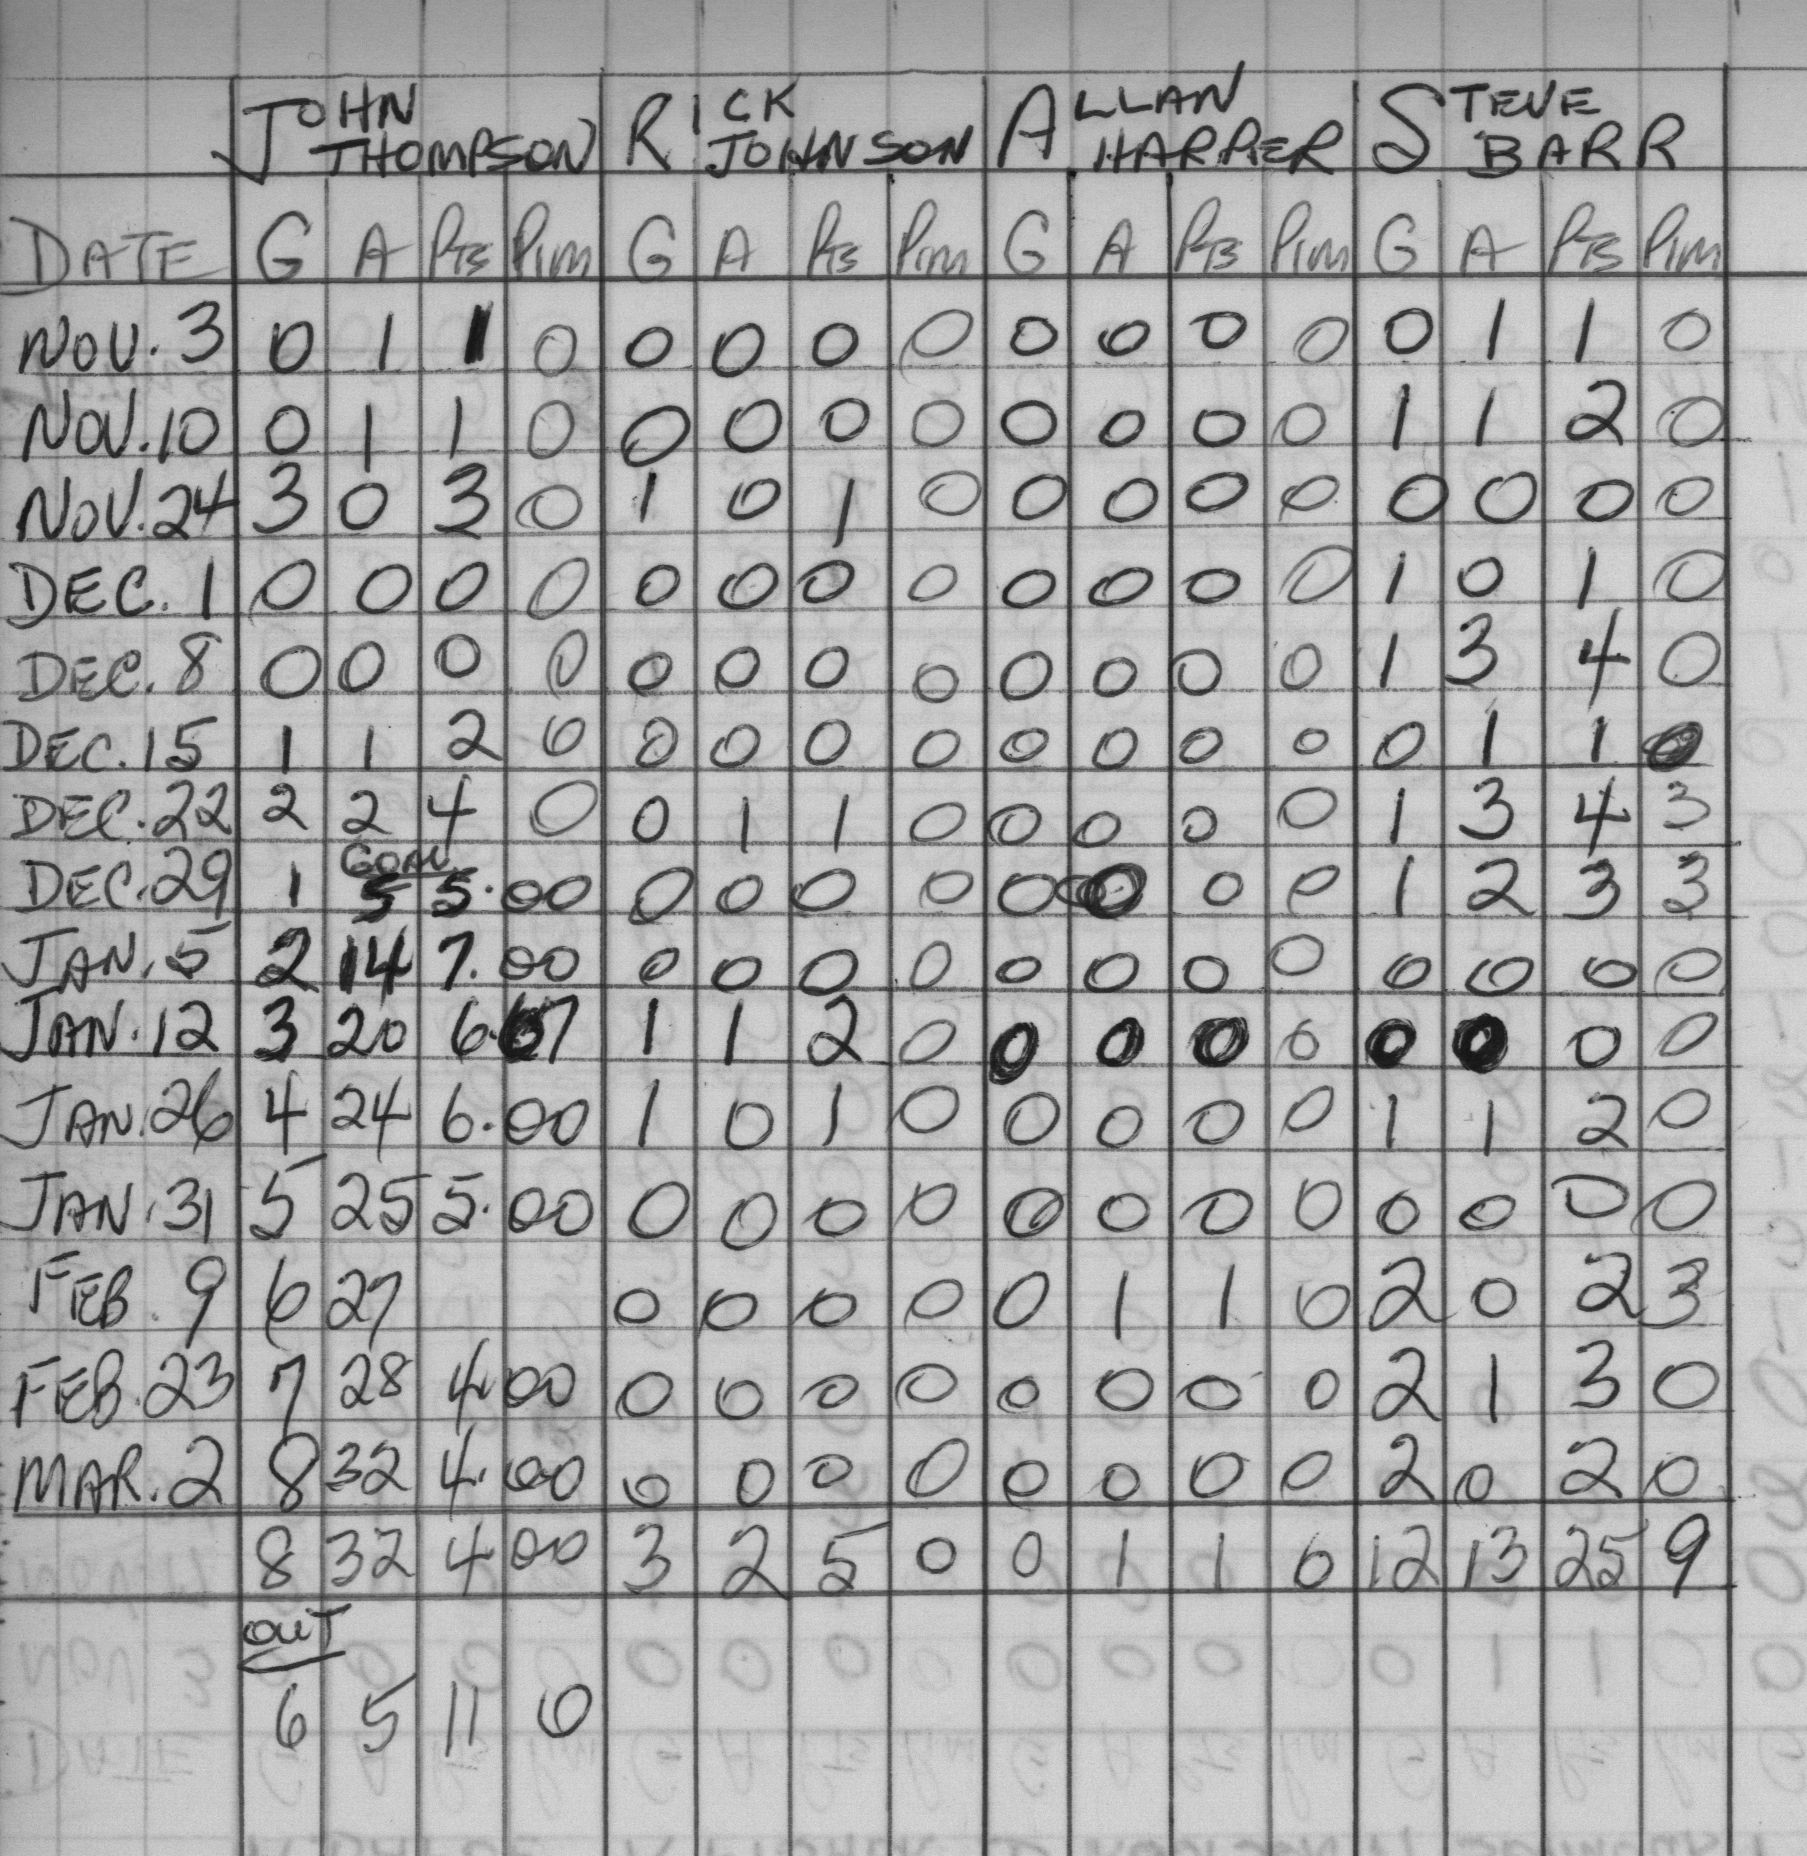 JOHN THOMPSON RICK JOHNSON ALLAN HARPER STEVE BARR
DATE G A PTS PIM G A PTS PIM G A PTS PIM G A PTS PIM
NOV. 3 0 1 1 0 0 0 0 0 0 0 0 0 0 1 1 0
NOV. 10 0 1 1 0 0 0 0 0 0 0 0 0 1 1 2 0
NOV. 24 3 0 3 0 1 0 1 0 0 0 0 0 0 0 0 0
DEC. 1 0 0 0 0 0 0 0 0 0 0 0 0 1 0 1 0
DEC. 8 0 0 0 0 0 0 0 0 0 0 0 0 1 3 4 0
DEC. 15 1 1 2 0 0 0 0 0 0 0 0 0 0 1 1 0
DEC. 22 2 2 4 0 0 1 1 0 0 0 0 0 1 3 4 3
GOAL
DEC. 29 1 5 5.00 0 0 0 0 0 0 0 0 1 2 3 3
JAN. 5 2 14 7.00 0 0 0 0 0 0 0 0 0 0 0 0
JAN. 12 3 20 6.67 1 1 2 0 0 0 0 0 0 0 0 0
JAN. 26 4 24 6.00 1 0 1 0 0 0 0 0 1 1 2 0
JAN. 31 5 25 5.00 0 0 0 0 0 0 0 0 0 0 0 0
FEB. 9 6 27 0 0 0 0 0 1 1 0 2 0 2 3
FEB. 23 7 28 4.00 0 0 0 0 0 0 0 0 2 1 3 0
MAR. 2 8 32 4.00 0 0 0 0 0 0 0 0 2 0 2 0
8 32 4.00 3 2 5 0 0 1 1 0 12 13 25 9
OUT
6 5 11 0